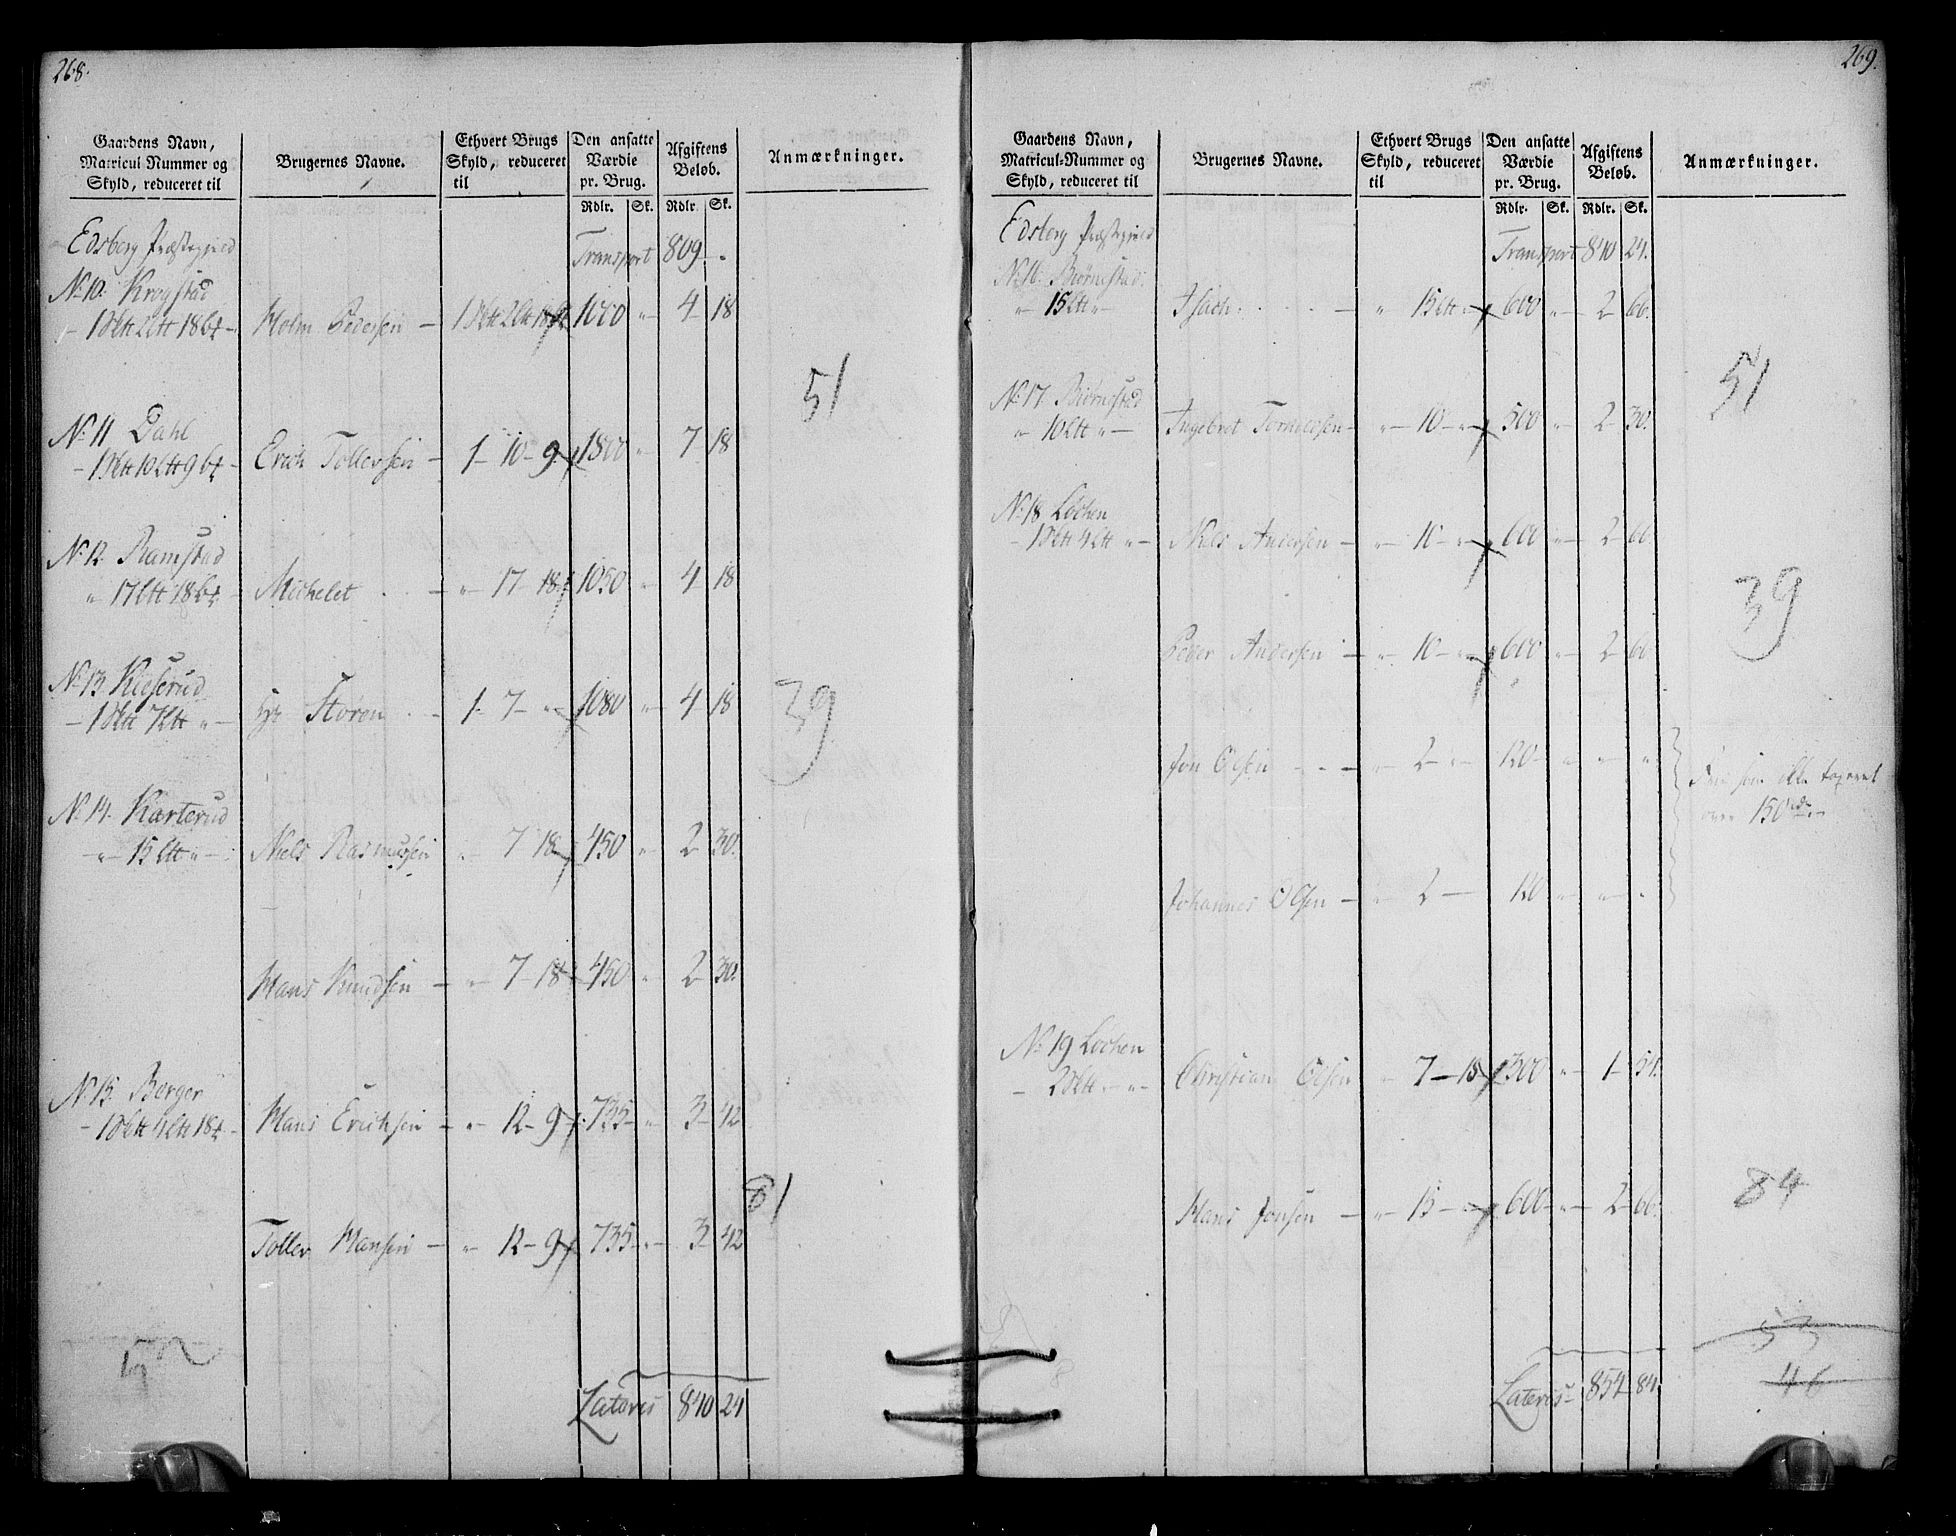 268.
Gaardens Navn,
Matricul Nummer og
Skyld, reduceret til
Brugernes Navne.
Ethvert Brugs
Skyld, reduceret
til
Den ansatte
Værdie
pr. Brug.
Rdlr. Sk.
Afgiftens
Beløb.
Rdlr. Sk.
Anmærkninger.
Edsberg Præstegjeld Transport 809 „
No. 10. Krogstad
Holm Pedersen 1000 „ 4 18
51
No. 11 Dahl
Erich Tollevsen 1 - 10 - 9 1800 „ 7 18
No. 12 Ramstad
Michelet „ 17 - 18 1050 „ 4 18
No. 13 Kieserud
Hr Støren 1 - 7 - „ 1080 „ 4 18
39
No. 14. Karterud
Niels Rasmussen „ 7 18 450 „ 2 30.
Hans Knudsen „ 7 - 18 450 „ 2 30.
No. 15. Berger
Hans Erichsen „ 12 - 9 735 „ 3 42
81
Tollev Hansen „ 12 - 9 735 „ 3 42
Lateris 840 24
269.
Gaardens Navn,
Matricul-Nummer og
Skyld, reduceret til
Brugernes Navne.
Ethvert Brugs
Skyld, reduceret
til
Den ansatte
Værdie
pr. Brug.
Rdlr. Sk.
Afgiftens
Beløb.
Rdlr. Sk.
Anmærkninger.
Edsberg Præstegjeld Transport 840 24.
No. 16. Biørnstad
Isach 600 „ 2 66.
51
No. 17 Biørnstad
Ingebret „ 10 „ 500 „ 2 30.
No. 18 Løchen
Niels Andersen „ 10 „ 600 „ 2 66
39
Peder Andersen „ 10 „ 600 „ 2 66
Jon Olsen „ 2 „ 120 „ „ „
ikke taxeret
over 150 rdr.
Johannes Olsen „ 2 120 „ „ „
No. 19 Løchen
Christian Olsen „ 7 - 18 300 „ 1 54.
84
Hans Jonsen „ 15 „ 600 „ 2 66.
53
46
Lateris 854 84